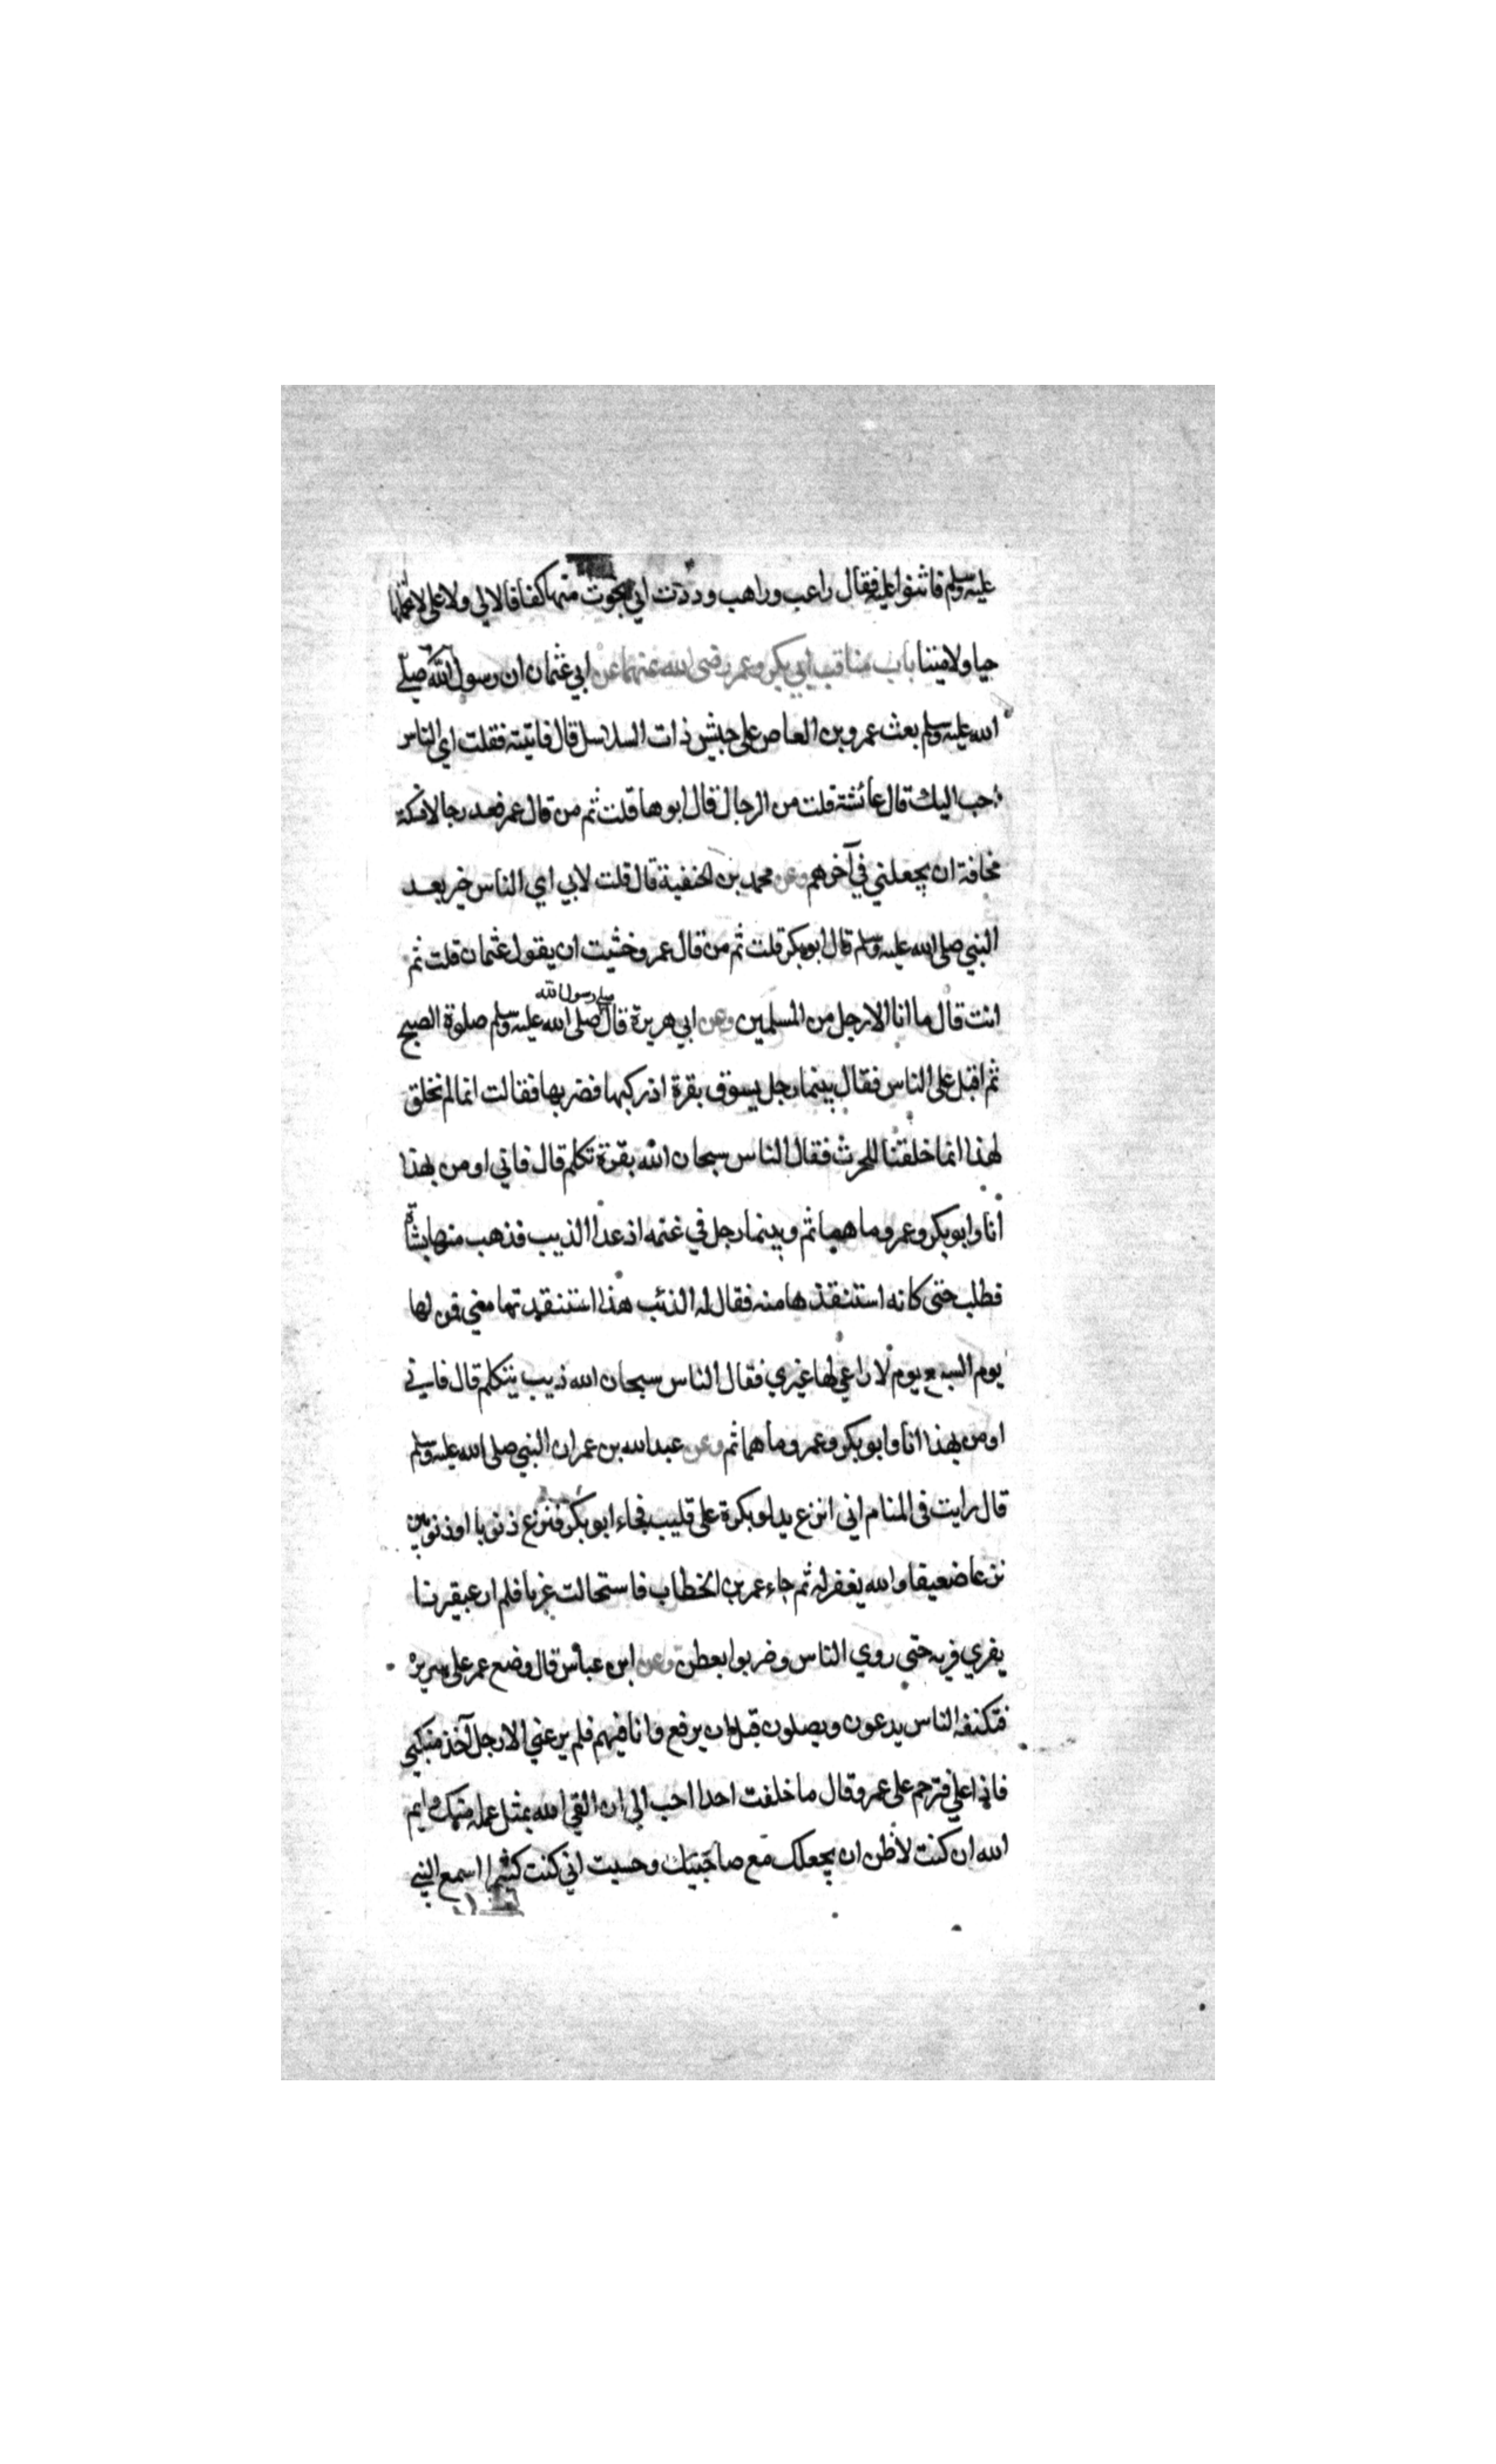 عليه وسلم فاثنوا عليه فقال راعب وراهب وددت اني نجوت منها كفافا لا لي ولا علي لا اتحملها
حيا ولا ميتا باب مناقب ابي بكر وعمر رضي الله عنهما عن ابي عثمان ان رسول الله صلى
الله عليه وسلم بعث عمرو بن العاص على جيش ذات السلاسل قال فاتيته فقلت اي الناس
احب اليك قال عائشة قلت من الرجال قال ابوها قلت ثم من قال عمر فعد رجالا فسكت
مخافة ان يجعلني في آخرهم وعن محمد بن الحنفية قال قلت لابي اي الناس خير بعد
النبي صلى الله عليه وسلم قال ابو بكر قلت ثم من قال عمر وخشيت ان يقول عثمان قلت ثم
انت قال ما انا الا رجل من المسلمين وعن ابي هريرة قال صلى رسول الله صلى الله عليه وسلم صلوة الصبح
ثم اقبل على الناس فقال بينما رجل يسوق بقرة اذ ركبها فضربها فقالت انا لم نخلق
لهذا انما خلقنا للحرث فقال الناس سبحان الله بقرة تكلم قال فاني اومن بهذا
انا وابو بكر وعمر وما هما ثم وبينما رجل في غنمه اذ عدا الذيب فذهب منها بشاة
فطلب حتى كانه استنقذها منه فقال له الذئب هذا استنقذتها مني فمن لها
يوم السبع يوم لا راعي لها غيري فقال الناس سبحان الله ذيب يتكلم قال فاني
اومن بهذا انا وابو بكر وعمر وما هما ثم وعن عبد الله بن عمر ان النبي صلى الله عليه وسلم
قال رايت في المنام اني انزع بدلو بكرة على قليب فجاء ابو بكر فنزع ذنوبا او ذنوبين
نزعا ضعيفا والله يغفر له ثم جاء عمر بن الخطاب فاستحالت غربا فلم ار عبقريا
يفري فريه حتى روي الناس وضربوا بعطن وعن ابن عباس قال وضع عمر على سريره
فتكنفه الناس يدعون ويصلون قبل ان يرفع وانا فيهم فلم يرعني الا رجل آخذ منكبي
فاذا علي فترحم على عمر وقال ما خلفت احدا احب الي ان القى الله بمثل عمله منك وايم
الله ان كنت لاظن ان يجعلك مع صاحبيك وحسبت اني كنت كثيرا اسمع النبي